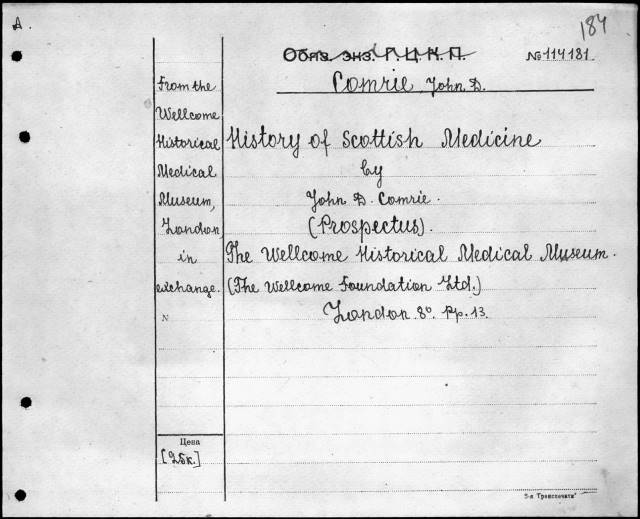 A.
184
Обяз. экз. Г.Ц.К.П.
№ 114181.
Comrie John D.
From the
Wellcome
Historical
Medical
Museum,
London
in
exchange.
N
History of Scottish Medicine
by
John D. Comrie.
(Prospectus).
The Wellcome Historical Medical Museum.
(The Wellcome Foundation Ltd.)
London 8° pp. 13.
Цена
[25к.]
5-я Транспечати